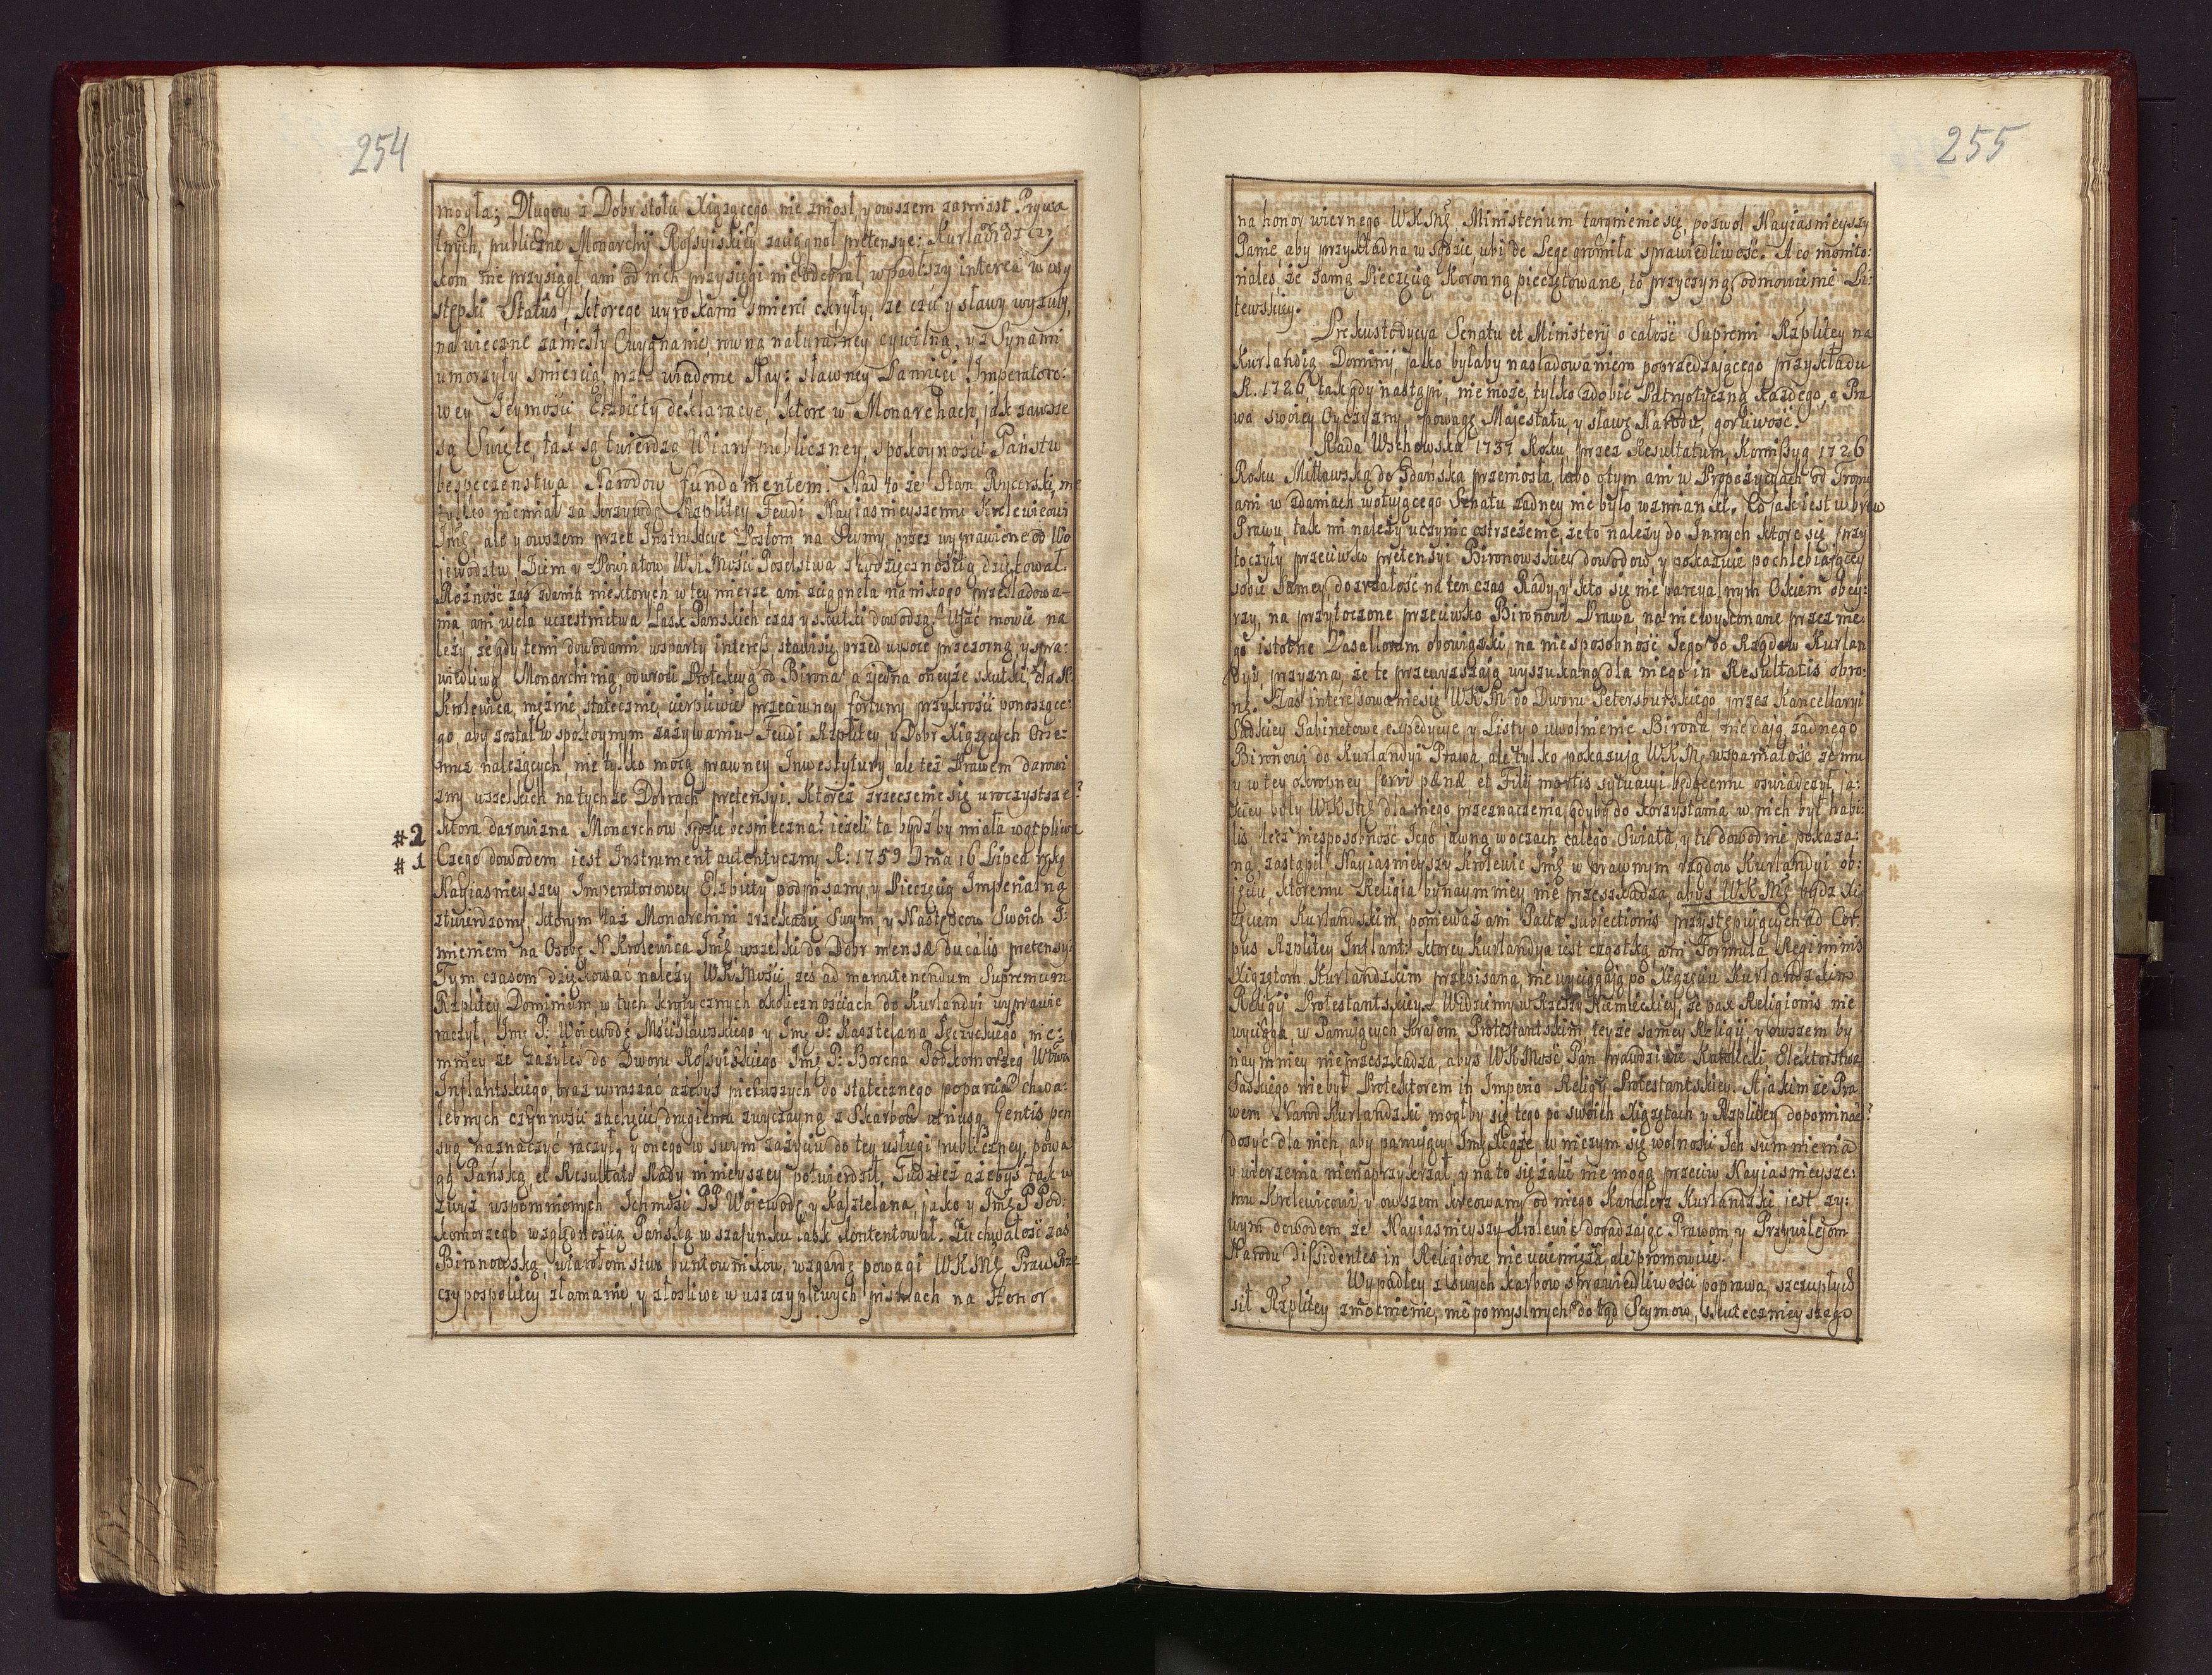 254
mogła; Długow z Dobr stołu Xiążęcego nie zniosł, y owszem zamiast Prywa
tnych, publiczne Monarchij Rossyiskiey zaciągnoł pretensye: Kurlandczy
kom nie przysiągł, ani od nich przysięgi nie odebrał, wpadłszy interea w wy
stępki Status, ktorego wyrokami smierci okryły, ze czci y sławy wyzuły,
na wieczne zaniesły Wygnanie, rowną naturalney cywilną, y z Synami
umorzyły smiercią, przez wiadome Nay: sławney Pamięci Imperatoro:
wey Jeymości Elżbiety deklaracye, ktore w Monarchach, jak zawsze
są Swięte, tak są twierdzą Wiary publiczney, spokoyności Państw
bespeczenstwa Narodow fundamentem. Nad to że Stan Rycerski, nie
tylko niemiał za krzywdę Rzplitey Feudi Nayiasnieyszemu Krolewicowi
Jmę ale y owszem przez Instrukcye Posłom na Seymy, przez wyprawione od Wo
jewodztw Ziem y Powiatow WKMości Poselstwa z wdzięcznością dziękował.
Rożność zas zdania niektorych w tey mierze, ani sciągneła na nikogo przesladowa-
nia, ani ujęła uczestnictwa Łask Pańskich czas y skutki dowodzą. Ufać mowię na
leży, że gdy temi dowodami wsparty interes, stawi się przed wysoce przezorną, y spra:
wiedliwą Monarchinią, odwroci Protekcyą od Birona, a zjedna oneyże skutki, dla N.
Krolewica, mężnie, statecznie, cierpliwie przeciwney fortuny przykrości ponoszące:
go, aby został w spokoynym zażywaniu Feudi Rzplitey, y Dobr Xiążęcych One:
muż należących, nie tylko mocą prawney Inwestytury, ale też Prawem darowi
zny wszelkich na tychże Dobrach pretensyi. Ktoreż zrzeczenie się uroczystsze?
#2 ktora darowizna Monarchow będzie bespieczna? ieżeli ta będzby miała wątpliwa
#1 Czego dowodem iest Instrument autentyczny R: 1759 Dnia 16 Lipca ręką
Nayiasnieyszey Imperatorowey Elżbiety podpisany, y Pieczęcią Imperialną
ztwierdzony, ktorym taż Monarchini zrzeka się Swym, y Następcow Swoich I:
mieniem na Osobę N Krolewica Jmę wszelki do Dobr mensæ ducalis pretensy:
Tym czasem dziękować należy WKMości, żeś ad manutenendum Supremum
Rzplitey Dominium, w tych krytycznych okolicznościach do Kurlandyi wyprawic
raczył, Jmę P: Woiewodę Mścisławskiego y Jmę P: Kasztelana Łęczyckiego, nie:
mniey że zażyłeś do Dworu Rossyiskiego Jmę P: Borcha Podkomorzeg Wtwa
Inflantskiego, oraz upraszac ażebyś pierwszych do statecznego poparcia chwa:
lebnych czynności zachęcił, drugiemu zwyczayną z Skarbow utriusq. Gentis pen
syą naznaczyć raczył, y onego w swym zażyciu do tey usługi publiczney, powa
gą Pańską, et Resultato Rady ninieyszey potwierdził. Tudzież ażebys tak w
zwyż wspomnionych Ichmści PP Woiewodę, y Kasztelana, jako y Jmę P Pod:
komorzego względnością Pańską w szafunku łask kontentował. Zuchwałość zaś
Bironowską, wiarołomstwo buntownikow, wzgardę powagi WKMę Praw Rze
czypospolitey złamanie, y złosliwe w uszczypliwych pismach na Honor.
255
na honor wiernego WKMę Ministerium targnienie się, pozwol Nayiasnieyszy
Panie, aby przykładna w sądzie, ubi de Lege gromiła sprawiedliwość. A co monito:
riales, że samą Pieczęcią Koronną pieczętowane, to przyczyną odmowienie Li:
tewskiey.
Prekustodycya Senatu et Ministerij o całość Supremi Rzplitey na
Kurlandią Dominij, jako byłaby nasladowaniem poprzedzającego przykładu
R. 1726, tak gdy nastąpi, nie może, tylko zdobić Patryotyczną każdego, o Pra
wa swoiey Oyczyzny, powagę Majestatu, y sławę Narodu, gorliwość.
Rada Wschowska 1737 Roku, przez Resultatum, Komissyą 1726
Roku Mittawską do Gdańska przeniosła, lubo o tym ani w Propozycyach od Tronu
ani w zdaniach wotuącego Senatu żadney nie było wzmianki. Co jak iest wbrew
Prawu, tak mi należy uczynic ostrzeżenie, że to należy do Innych ktore się przy
toczyły przeciwko pretensyi Bironowskiey dowodow, y pokazuie pochlebiającey
sobie samey, dozrzałość na ten czas Rady, y kto się nie parcyalnym Okiem obey:
rzy, na przytoczone przeciwko Bironowi Prawa, na niewykonane przez nie
go istotne Vasallorum obowiązki, na niesposobność Jego do Rządow Kurlan
dyi, przyzna, że te przewyższają wyszukaną dla niego in Resultatis obro:
nę. Zas interessowanie się WKM do Dworu Petersburskiego, przez Kancellaryi
Saskiey Gabinetowe expedycye, y Listy o uwolnienie Birona, nie dają żadnego
Bironowi do Kurlandyi Prawa, ale tylko pokazują WKM, wspaniałość, żemu
y w tey okropney, servi pænæ et Filij mortis sytuacyi będącemu oświadczył, ja:
kiey były WKMę dla niego przeznaczenia, gdyby do korzystania w nich był habi
lis, lecz niesposobność Jego jawną w oczach całego Swiata, y tu dowodnie pokaza:
ną, zastąpił Nayiasnieyszy Krolewic Jmę w prawnym rządow Kurlandyi ob:
jęciu, ktoremu Religia bynaymniey nie przeszkadza, abyś WKMę będz Xi
ążęciem Kurlandskim, ponieważ ani Pacta subjectionis przystępujących ad Cor
pus Rzplitey Inflant: ktorey Kurlandya iest cząstką, ani Formula Regiminis
Xiążętom Kurlandzkim przepisana, nie wyciągają po Xiążęciu Kurlandzkim
Religij Protestantskiey. Widziemy w Rzeszy Niemieckiey, że pax Religionis nie
wyciąga, w Panujących Krajom Protestantskim, teyże samey Religij, y owszem by
naymniey nie przeszkadza, abys WKMość Pan prawdziwie Katolicki Elektorstwa
Saskiego nie był Protektorem in Imperio Religij Protestantskiey. A jakimże Pra
wem Narod Kurlandzki mogłby się tego po swoich Xiążętach y Rzplitey dopominać?
dosyć dla nich, aby panujący Jmę Xiąże, w niczym się wolności Ich sumnienia
y wierzenia nienaprzykrzał, y na to się żalić nie mogą przeciw Nayiasnieysze:
mu Krolewicowi, y owszem kreowany od niego Kanclerz Kurlandzki jest ży:
wym dowodem, że Nayiasnieyszy Krolewic dogadzając Prawom, y Przywilejom
Narodu dissidentes in Religione nie uciemięża, ale promowuie.
Wypadłey z swych karbow sprawiedliwości poprawa, szczupłych
sił Rzplitey zmocnienie, nie pomyslnych do tąd Seymow, skutecznieyszego